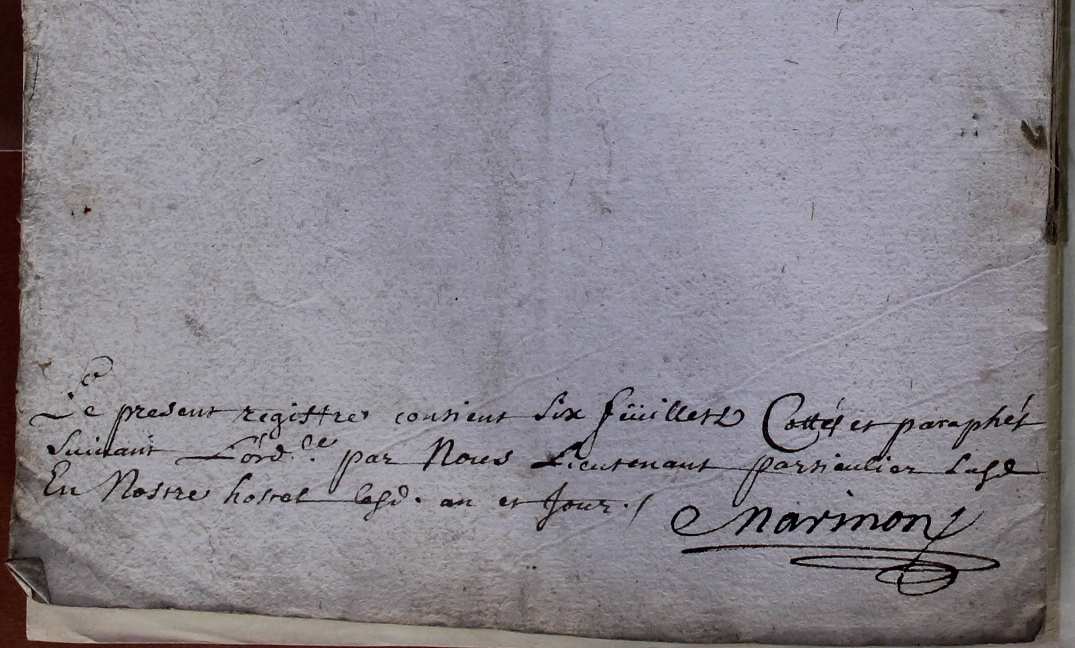 Le present registre contient Six feüillets Cottés et paraphés
Suivant L'ord.ce par Nous Lieutenant particulier Susd
En Nostre hostel lesd. an et Jour ./
Marimon